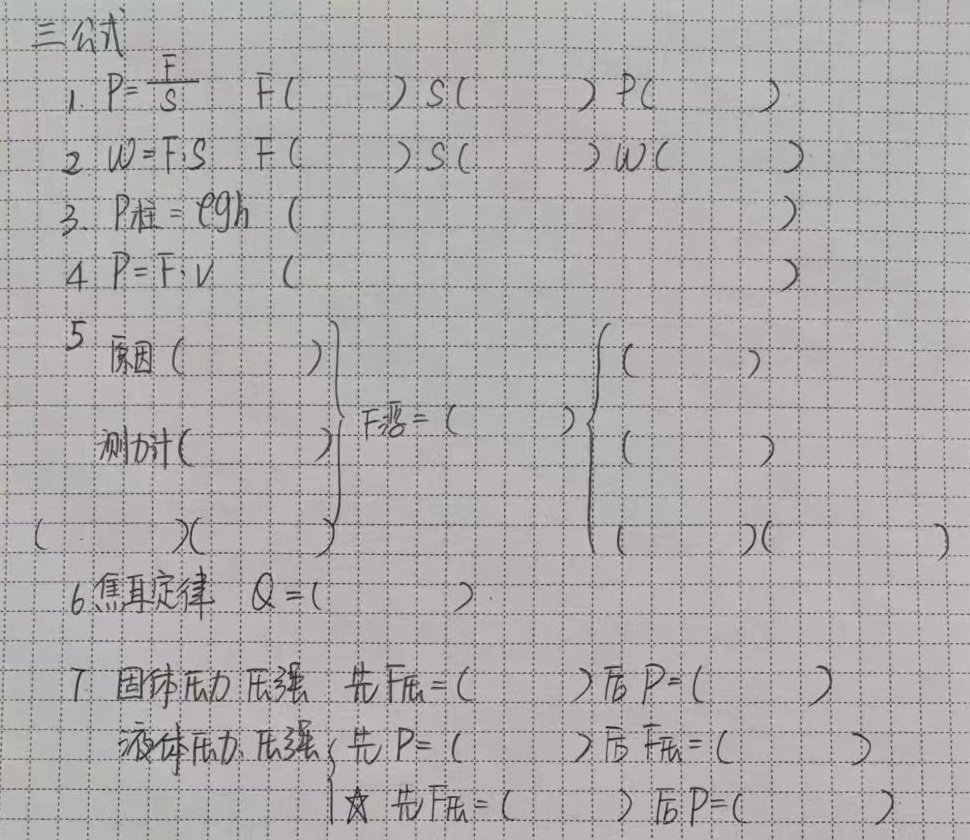 三公式
1. P=F/S F( ) S( ) P( )
2. W=F·S F( ) S( ) W( )
3. P柱=ρgh ( )
4 P=F·V ( )
5 原因( )
( )
F浮=( )
测力计( )
( )
( )( )
( )( )
6 焦耳定律 Q=( )
7 固体压力 压强 先F压=( ) 后P=( )
液体压力、压强 { 先P=( ) 后F压=( )
☆ 先F压=( ) 后P=( )